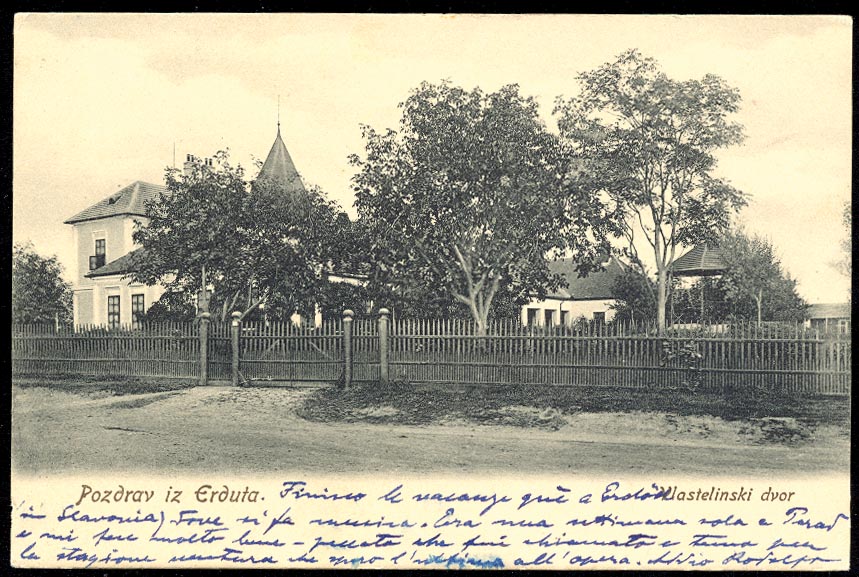 Pozdrav iz Erduta. Finisco le vacanze quì a Erdöd Vlastelinski dvor
(in Slavonia) dove si fa musica. Era una settimana sola a
e mi fece molto bene - peccato che fui chiamato e temo per
la stagione ventura che sarò l' all'opera. Addio Rodolfo